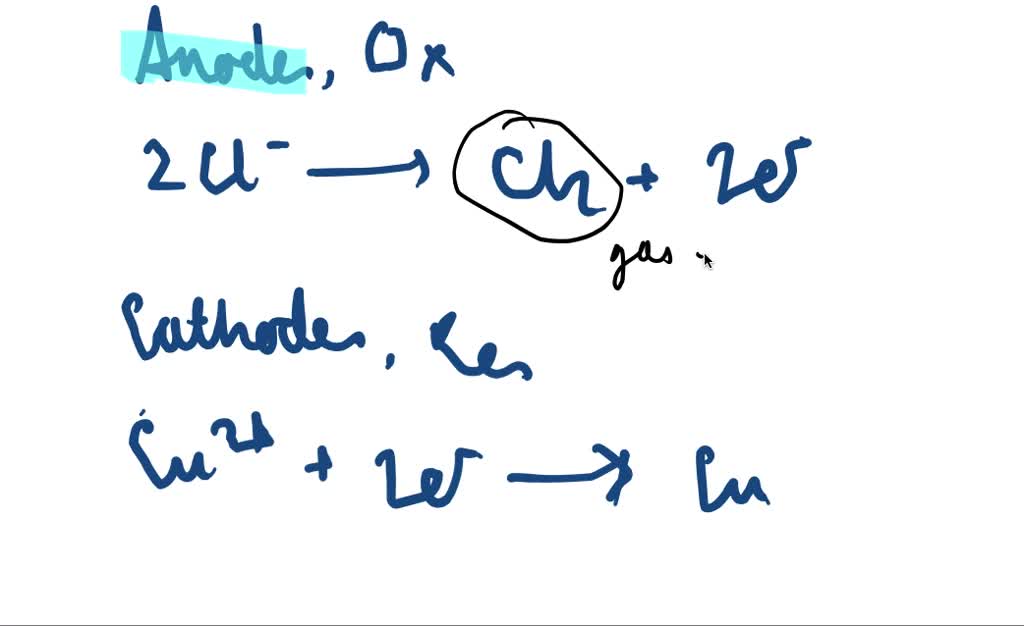 Anode, Ox
2Cl⁻ → Cl₂ + 2e⁻
gas
Cathode, Red
Cu²⁺ + 2e⁻ → Cu